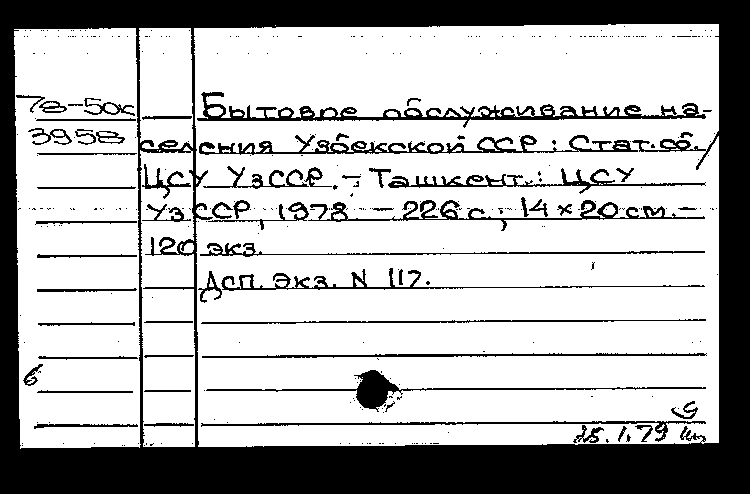 78-50к
3958
Бытовое обслуживание на-
селения Узбекской ССР : Стат. сб. /
ЦСУ УзССР. – Ташкент. : ЦСУ
УзССР, 1978 – 226 с. ; 14 × 20 см. –
120 экз.
Дсп. Экз. N 117.
6
25.1.79